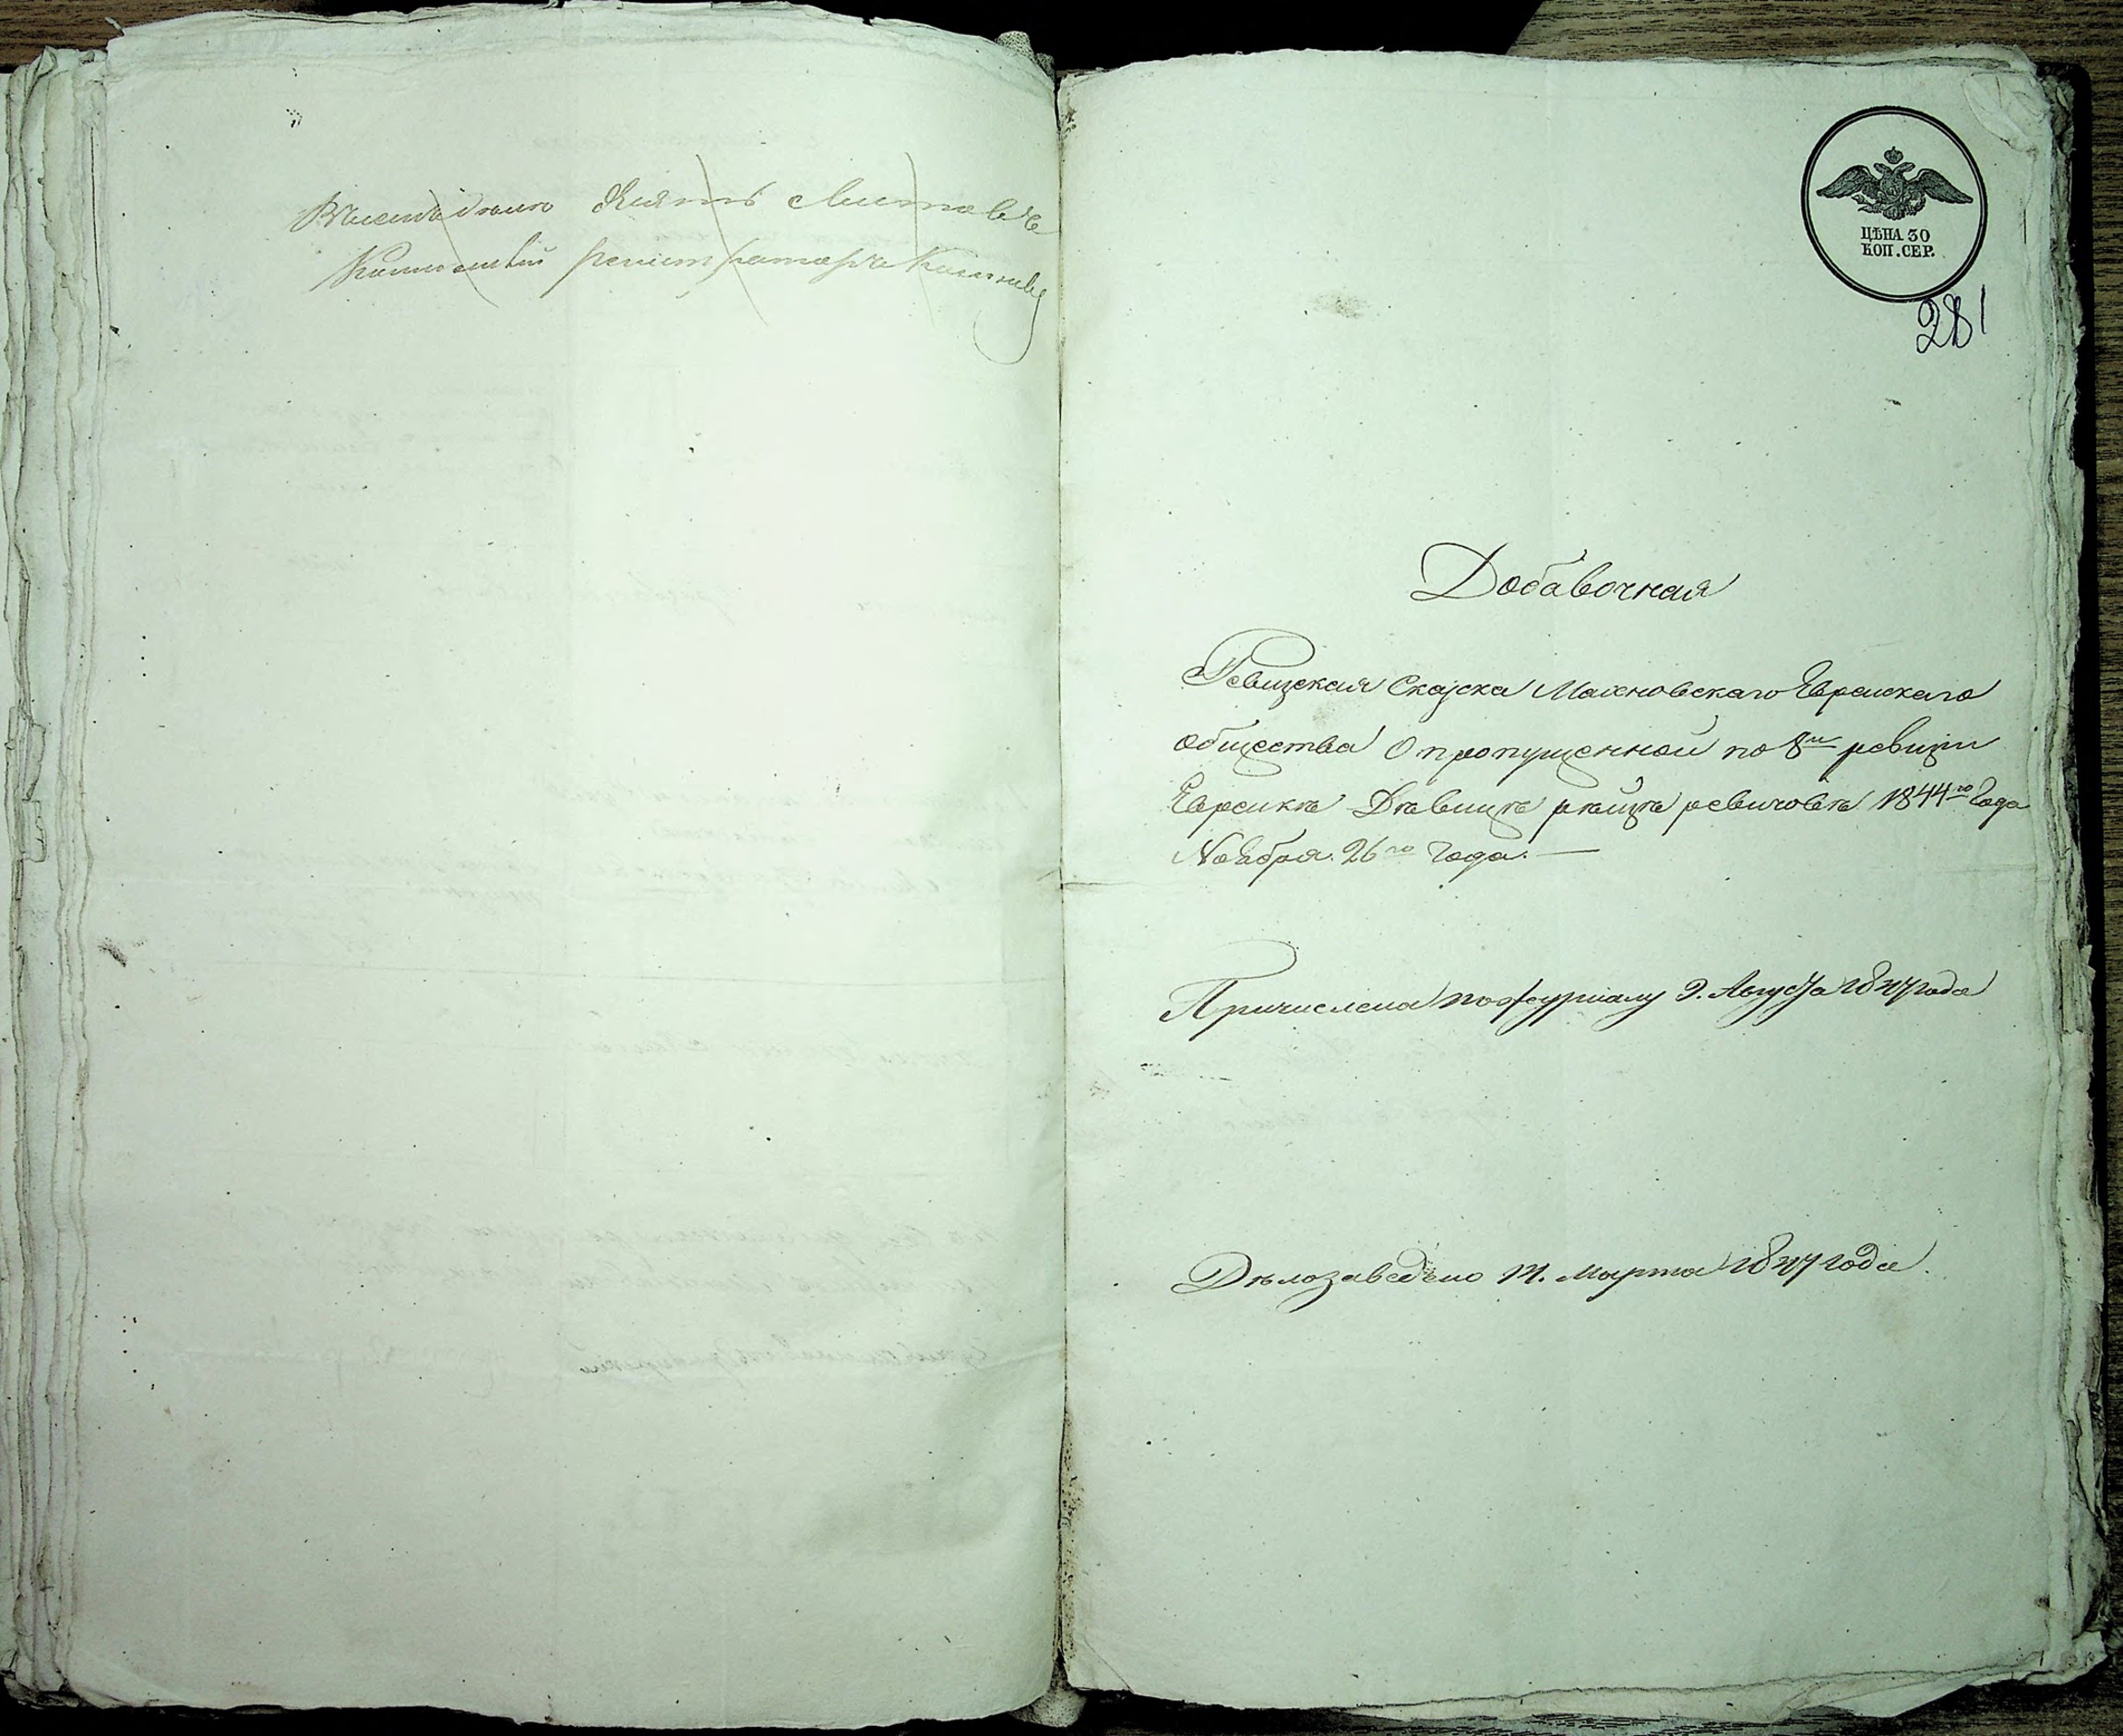 листовъ
Коллежскій регистраторъ
ЦѢНА 30
КОП. СЕР.
281
Добавочная
Ревизская Сказка Махновскаго Еврейскаго
общества О пропущенной по 8й ревизіи
Еврейкѣ 1844го Года
Ноября 26го года. —
Причислена по журналу 9. Августа 1847 года
Дѣло заведено 14. Марта 1847 года.